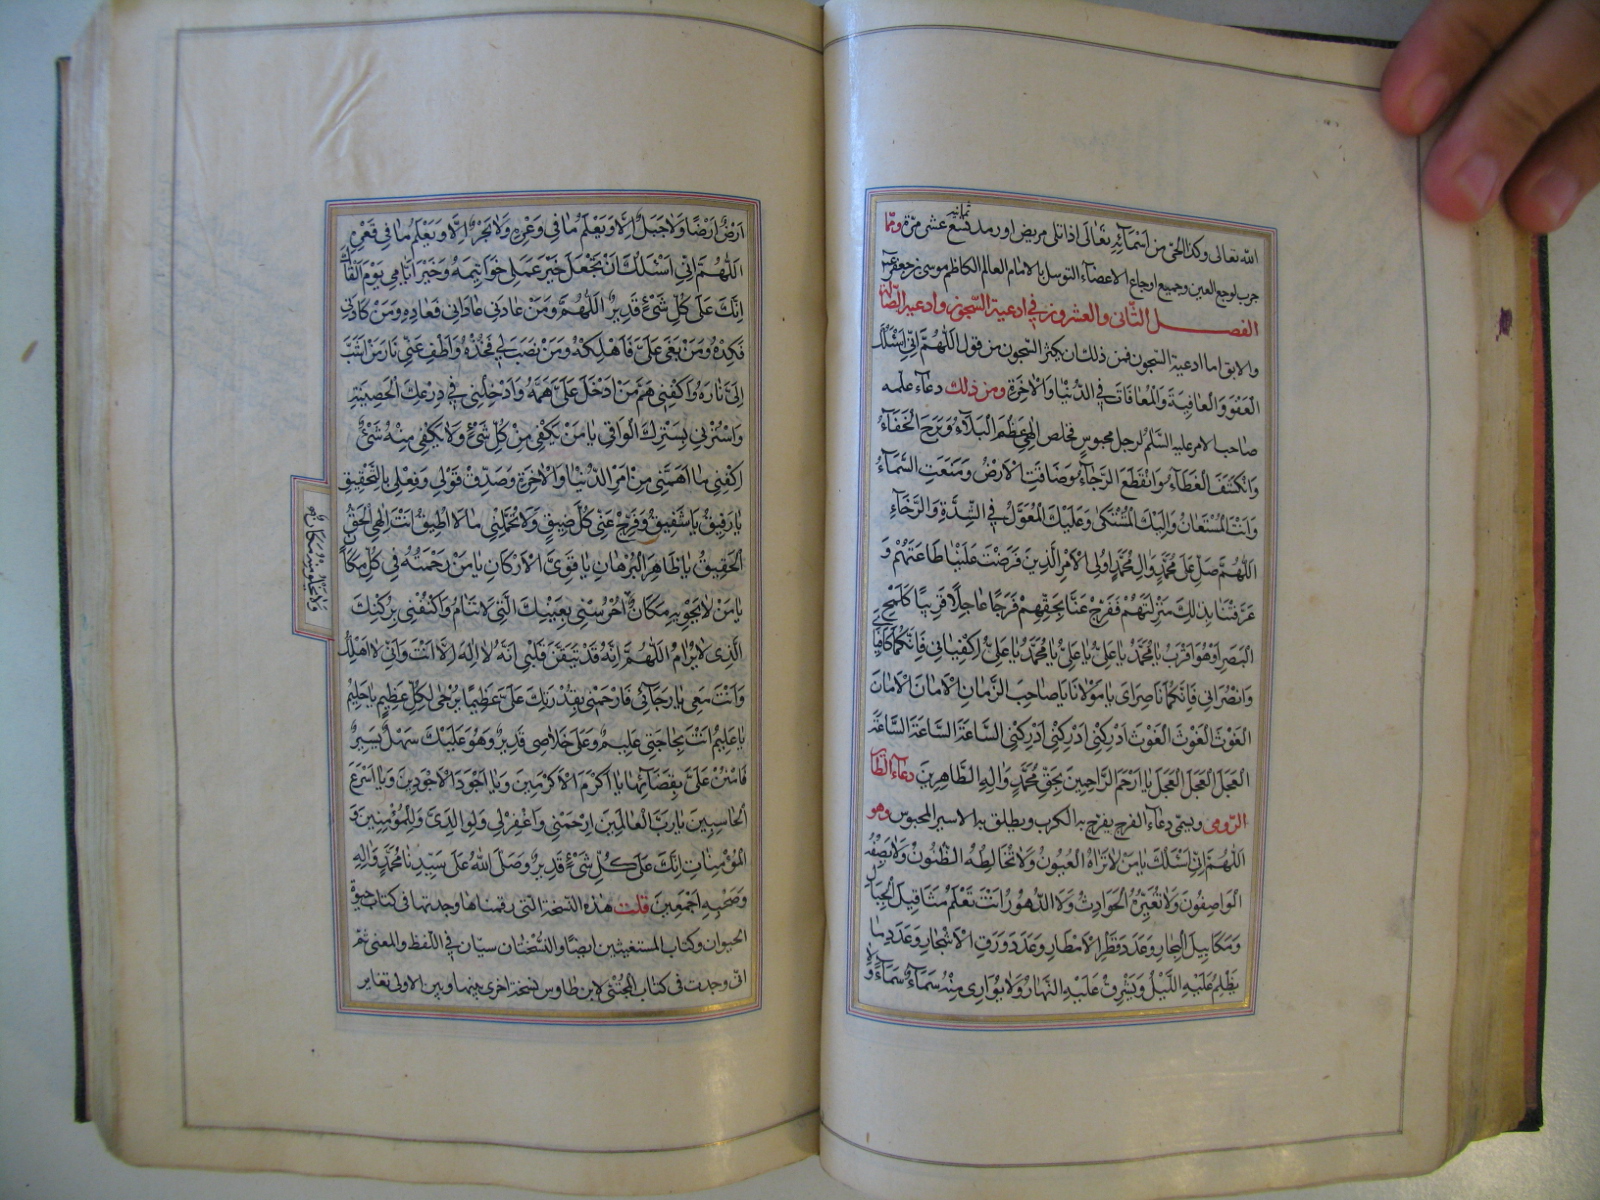 الله تعالى وكذا الحي من اسمآئه تعالى اذا تلى مريض او رمد تسع عشر مرة ومما
ثمانية
جرب لوجع العين وجميع اوجاع الاعضآء التوسل بالامام العالم الكاظم موسى بن جعفر
الفصل الثاني والعشرون في ادعية السجون وادعية الضالة
والابق اما ادعية السجون فمن ذلك ان يكثر المسجون من قول اللهم اني اسئلك
العفو والعافية والمعافاة في الدنيا والاخرة ومن ذلك دعآء علمه
صاحب الامر عليه السلم لرجل محبوس فخلص الهي عظم البلآء وبرح الخفآء
وانكشف الغطآء وانقطع الرجآء وضاقت الارض ومنعت السمآء
وانت المستعان واليك المشتكى وعليك المعول في الشدة والرخآء
اللهم صل على محمد وال محمد اولى الامر الذين فرضت علينا طاعتهم و
عرفتنا بذلك منزلتهم ففرج عنا بحقهم فرجا عاجلا قريبا كلمح
البصر او هو اقرب يا محمد يا علي يا علي يا محمد يا محمد يا علي اكفياني فانكما كافيا
وانصراني فانكما ناصراى يا مولانا يا صاحب الزمان الامان الامان
الغوث الغوث الغوث ادركني ادركني ادركني الساعة الساعة الساعة
العجل العجل العجل يا ارحم الراحمين بحق محمد واله الطاهرين دعآء الطاير
الرومي ويسمى دعآء الفرج يفرج به الكرب ويطلق به الاسير المحبوس وهو
اللهم اني اسئلك يا من لا تراه العيون ولا تخالطه الظنون ولا يصفه
الواصفون ولا تغيره الحوادث ولا الدهور انت تعلم مثاقيل الجبال
ومكاييل البحار وعدد قطر الامطار وعدد ورق الاشجار وعدد ما
يظلم عليه الليل ويشرق عليه النهار ولا يوارى منه سمآء سمآء ولا
ارض ارضا ولا جبل الا ويعلم ما في وعره ولا بحر الا ويعلم ما في قعره
اللهم اني اسئلك ان تجعل خير عملي خواتيمه وخير ايامي يوم القاك
انك على كل شئ قدير اللهم ومن عاداني فعاده ومن كادني
فكده ومن بغى على فاهلكه ومن نصب لي فخذه واطف عني نار من اشب
الى ناره واكفني هم من ادخل على همه وادخلني في درعك الحصينة
واسترني بسترك الواقي يا من يكفي من كل شئ ولا يكفي منه شئ
اكفني ما اهمني من امر الدنيا والاخرة وصدق قولي وفعلي بالتحقيق
يا رفيق يا شفيق وفرج عني كل ضيق ولا تحملني ما لا اطيق انت الهي الحق
الحقيق يا ظاهر البرهان يا قوى الاركان يا من رحمته في كل مكان
ولا يخلو منه مكان
يا من لا يحويه مكان احرسني بعينك التي لا تنام واكنفني بركنك
الذى لا يرام اللهم انه قد تيقن قلبي انه لا اله الا انت واني لا اهلك
وانت معي يا رجائي فارحمني بقدرتك على يا عظيما يرجى لكل عظيم يا حليم
يا عليم انت بحاجتي عليم وعلى خلاصي قدير وهو عليك سهل يسير
فامنن على بقضآئها يا اكرم الاكرمين ويا اجود الاجودين ويا اسرع
الحاسبين يا رب العالمين ارحمني واغفر لي ولوالدى وللمؤمنين و
المؤمنات انك على كل شئ قدير وصلى الله على سيدنا محمد واله
وصحبه اجمعين قلت هذه النسخة التي رقمناها وجدتها في كتاب حيوة
الحيوان وكتاب المستغيثين ايضا والنسختان سيان في اللفظ والمعنى ثم
اني وجدت في كتاب المجتنى لابن طاوس نسخة اخرى بينها وبين الاولى تغاير